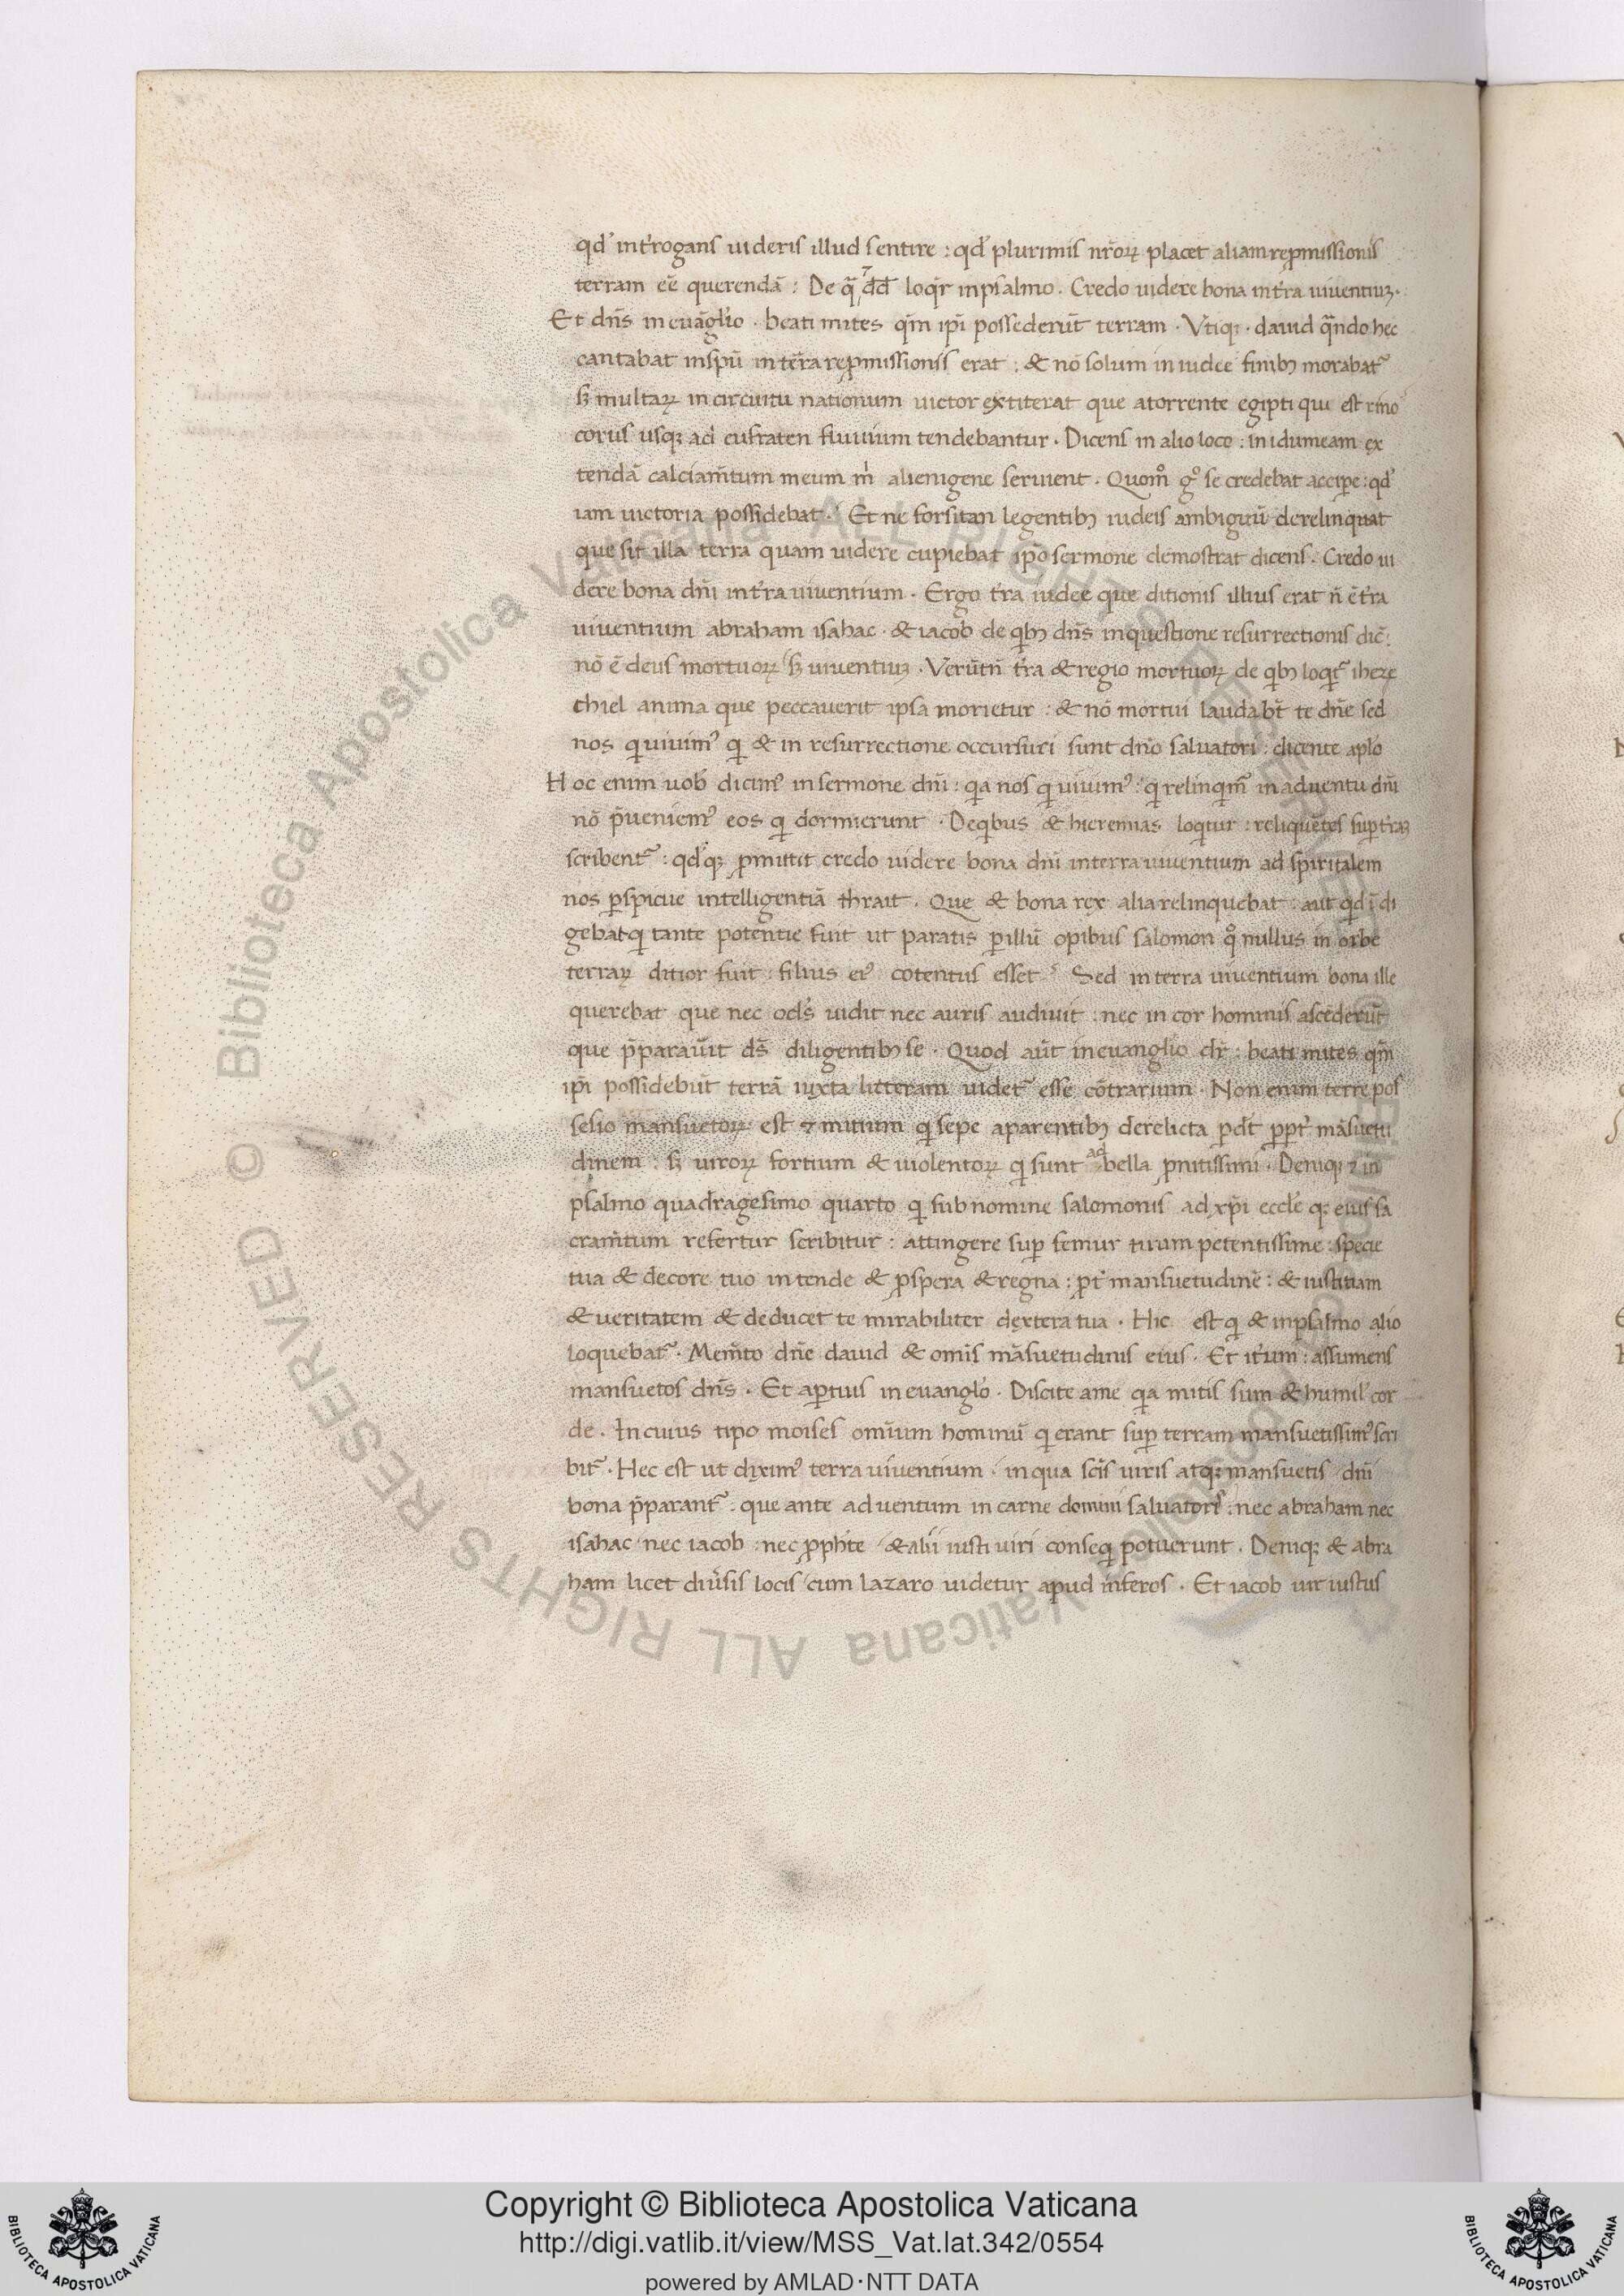 qd' int'rogans uideris illud sentire : qd' plurimis nr̄oꝝ placet aliam repmissionis
terram eē querendā : De q̄ ⁊ dd̄ loqr̄ in psalmo . Credo uidere bona in t'ra uiuentiuꝫ .
Et dn̄s in euāglio . beati mites qm̄ ip̄i possederūt terram . Vtiqꝫ . dauid qn̄do hec
cantabat in spū in tēra repmissionis erat : & nō solum in iudee finibꝫ morabat᷑
sꝫ multaꝝ in circuitu nationum uictor extiterat que a torrente egipti qui est rino
corus usqꝫ ad eufraten fluuium tendebantur . Dicens in alio loco : in idumeam ex
tendā calciam̄tum meum m̄ alienigene seruient . Quom̊ g̊ se credebat accipe : qd'
iam uictoria possidebat . Et ne forsitan legentibꝫ iudeis ambiguū derelinquat
que sit illa terra quam uidere cupiebat ip̄o sermone demostrat dicens . Credo ui
dere bona dn̄i in t'ra uiuentium . Ergo t'ra iudee que ditionis illius erat n̄ ē t'ra
uiuentium abraham isahac . & iacob de qibꝫ dn̄s in questione resurrectionis dic̄ :
nō ē deus mortuoꝝ sꝫ uiuentiuꝫ . Verūtn̄ t'ra & regio mortuoꝝ de qibꝫ loqt᷑ iheze
chiel anima que peccauerit ipsa morietur : & nō mortui laudabt̄ te dn̄e sed
nos qi uiuim᷒ qi & in resurrectione occursuri sunt dn̄o saluatori : dicente aplo
Hoc enim uob' dicim᷒ in sermone dn̄i : qia nos qi uiuim᷒ : qi relinqim᷒ in aduentu dn̄i
nō p̄ueniem᷒ eos qi dormierunt . De qibus & hieremias loqitur : reliquētes sup t'raꝫ
scribent᷑ : qd'qꝫ pmittit credo uidere bona dn̄i in terra uiuentium ad spiritalem
nos pspicue intelligentiā thrait . Que & bona rex alia relinquebat : aut qid īdi
gebat qi tante potentie fuit ut paratis p illū opibus salomon q̊ nullus in orbe
terraꝝ ditior fuit : filius ei᷒ cotentus esset ? Sed in terra uiuentium bona ille
querebat que nec ocl's uidit nec auris audiuit : nec in cor hominis ascēderūt
que p̄parauit ds̄ diligentibꝫ se . Quod aūt in euanglio dr̄ : beati mites qm̄
ip̄i possidebūt terrā iuxta litteram uidet᷑ esse cōtrarium . Non enim terre pos
sesio mansuetoꝝ est ⁊ mitium qi sepe a parentibꝫ derelicta pdt̄ ppt' māsuetu
dinem : sꝫ uiroꝝ fortium & uiolentoꝝ qi sunt ad bella pnitissimi . Deniqꝫ ⁊ in
psalmo quadragesimo quarto qi sub nomine salomonis ad xp̄i eccl'e qꝫ eius sa
cram̄tum refertur scribitur : attingere sup femur tuum potentissime : specie
tua & decore tuo intende & pspera & regna : pt' mansuetudinē : & iustitiam
& ueritatem & deducet te mirabiliter dextera tua . Hic est qi & in psalmo alio
loquebat᷑ . Mem̄to dn̄e dauid & omīs māsuetudinis eius . Et it'um : assumens
mansuetos dn̄s . Et aptius in euanglo . Discite a me qia mitis sum & humil' cor
de . In cuius tipo moises omīum hominū qi erant sup terram mansuetissim᷒ scri
bit᷑ . Hec est ut dixim᷒ terra uiuentium . in qua sc̄is uiris atqꝫ mansuetis dn̄i
bona p̄parant᷑ . que ante aduentum in carne domini saluatoris : nec abraham nec
isahac nec iacob : nec pph̄te & alii iusti uiri conseqi potuerunt . Deniqꝫ & abra
ham licet diu'sis locis cum lazaro uidetur apud inferos . Et iacob uir iustus
Copyright © Biblioteca Apostolica Vaticana
http://digi.vatlib.it/view/MSS_Vat.lat.342/0554
powered by AMLAD·NTT DATA
BIBLIOTECA APOSTOLICA VATICANA
BIBLIOTECA APOSTOLICA VATICANA
© Biblioteca Apostolica Vaticana ALL RIGHTS RESERVED © Biblioteca Apostolica Vaticana ALL RIGHTS RESERVED